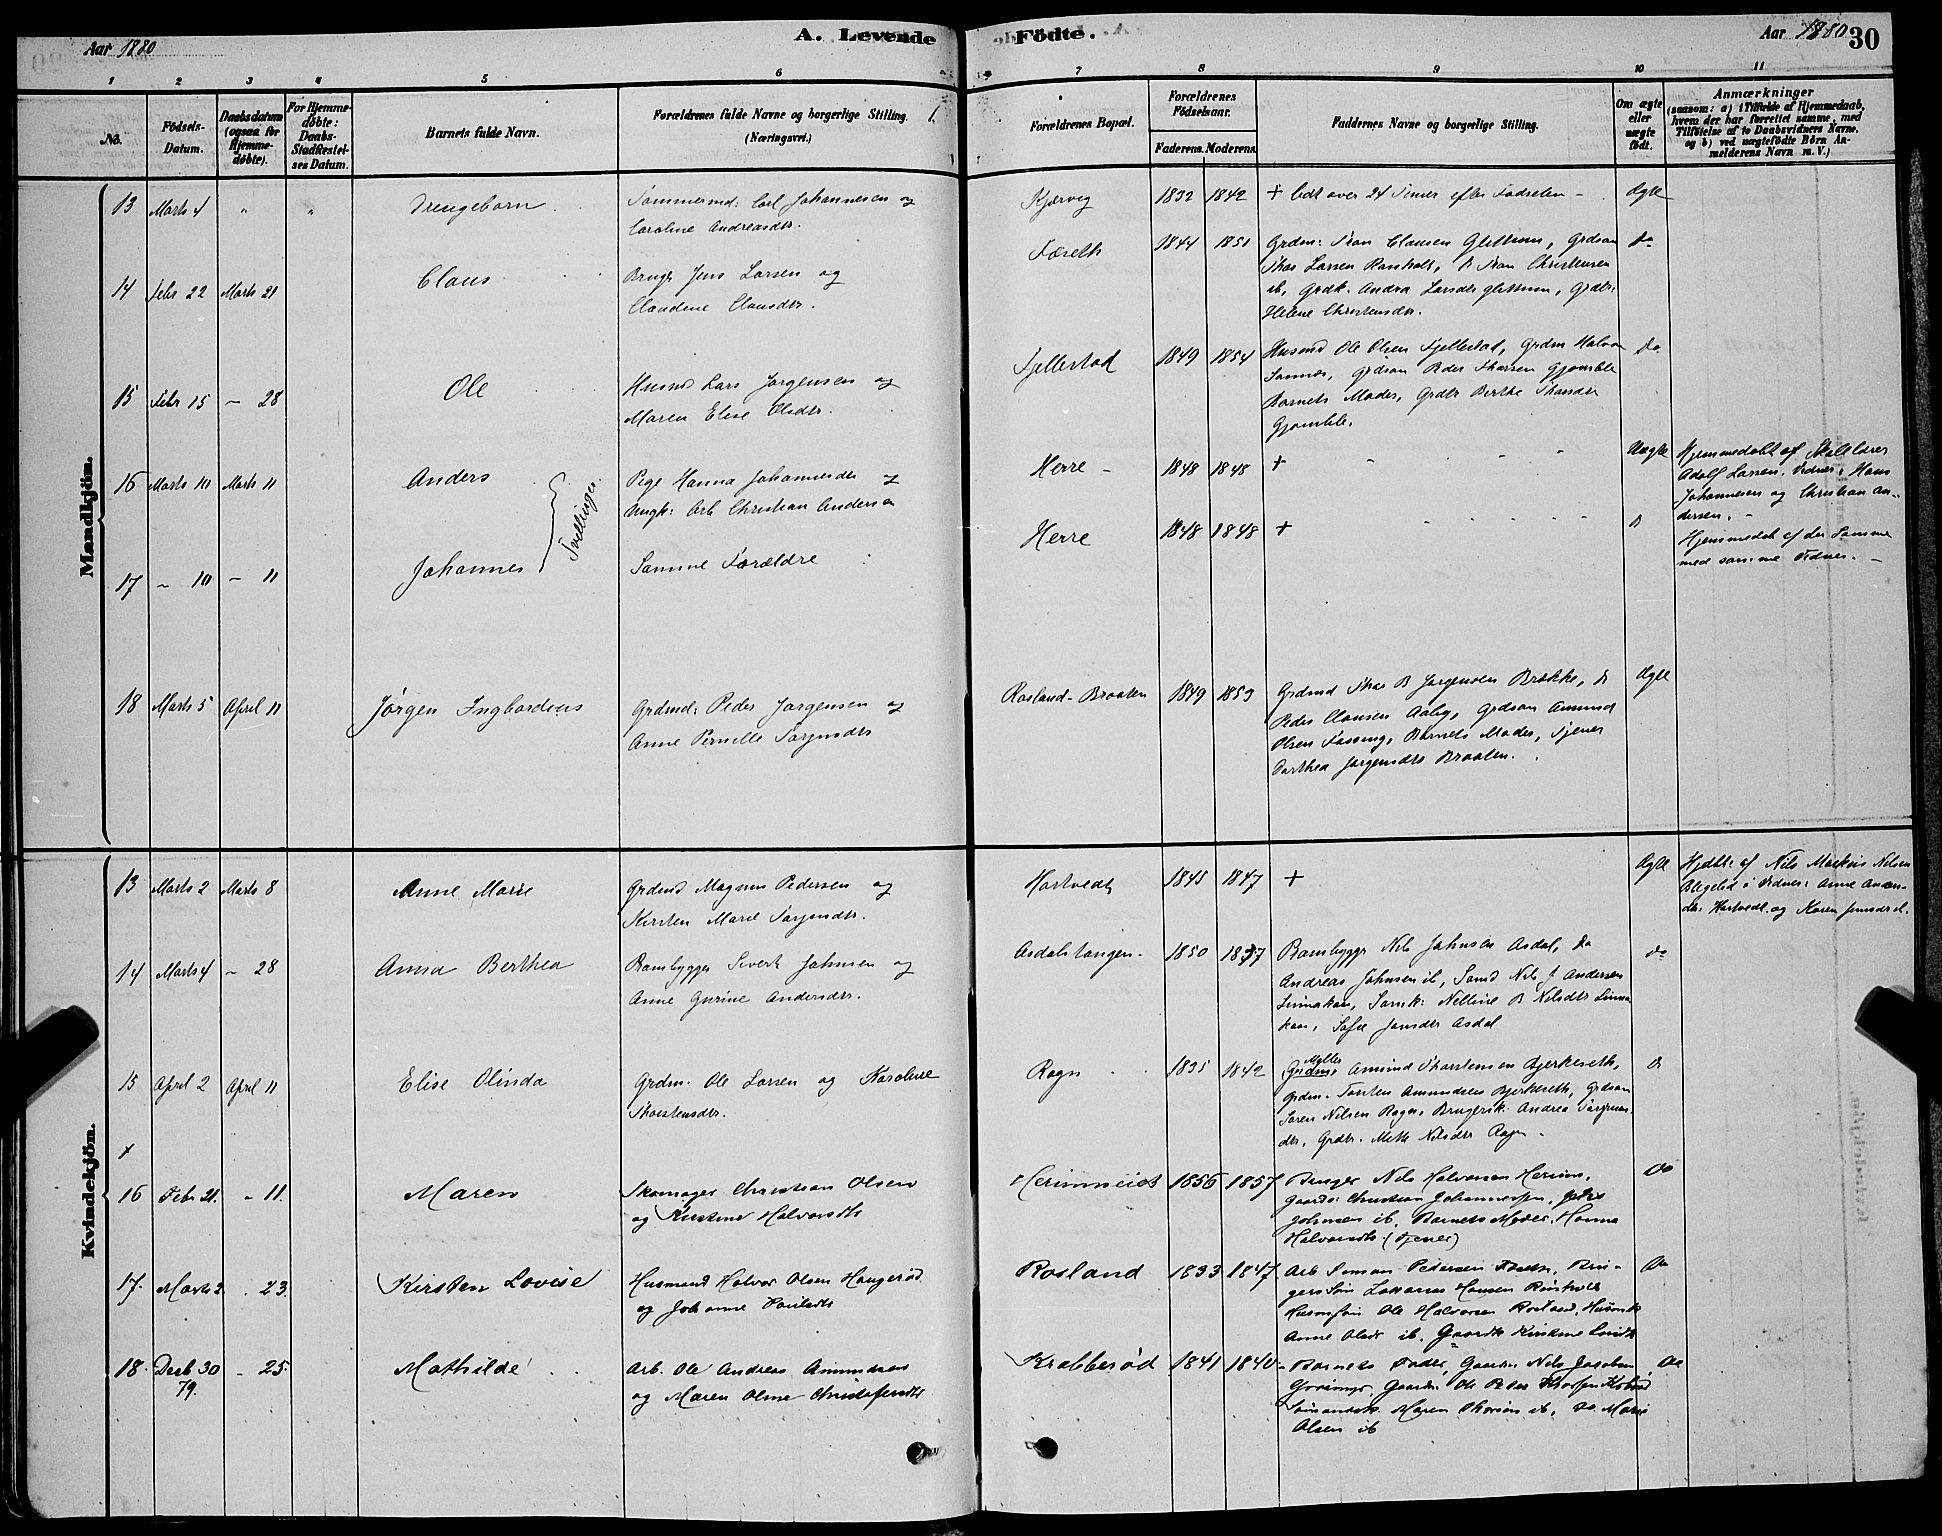 Aar 1880
A. Levende
1 2 3 4 5 6
No.
Födsels-Datum.
Daabsdatum (ogsaa for Hjemmedöbte).
For Hjemmedöbte: Daabs-Stadfæstelses Datum.
Barnets fulde Navn.
Forældrenes fulde Navne og borgerlige Stilling. (Næringsvei.)
Födte.
Aar 1880 30
7 8 9 10 11
Forældrenes Bopæl.
Forældrenes Födselsaar.
Faderens. Moderens.
Faddernes Navne og borgerlige Stilling.
Om ægte eller uægte födt.
Anmærkninger
(saasom: a) i Tilfælde af Hjemmedaab,
hvem der har forrettet samme, med
Tilföielse af to Daabsvidners Navne.
og b) ved uægtefödte Börn An-
melderens Navn m. V.)
Mandkjön.
13 Marts 4 " " Drengebarn Tømmermd: Carl Johannesen og
Caroline Andreasdtr.
Kjørvig 1832 1842 + lidt over 24 Timer efter Fødselen - Ægte
14 Febr 22 Marts 21 Claus Brugr Jens Larsen og
Claudine Clausdtr.
1844 1851 Grdm: Clausen Glittum, Grdsøn
Thos Larsen Ronholt, Christensen
ib, Grdk. Andrea Larsdtr Glittum, Grdtr:
Helene Christensdtr. do
15 Febr 15 - 28 Ole Husmd Lars Jørgensen og
Maren Elise Olsdtr.
Fjellestad 1849 1854 Husmd Ole Olsen Fjellestad, Grdm Halvor
Grdsøn Peder Thorsen Gjømble
Barnets Moder, Grdtr Berthe
Gjømble. do.
16 Marts 10 Marts 11 Anders Pige Hanna Johannesdtr og
Ungk: Arb Christian Andersen
Herre - 1848 1848 + " " " Uægte
Hjemmedøbt af Skolelærer
Adolf Larsen. Vidner: Hans
Johannesen og Christian An-
dersen. -
Tvillinger.
17 - 10 - 11 Johannes Samme Forældre
Herre 1848 1848 + " " " "
Hjemmedøbt af den Samme
med samme Vidner. -
18 Marts 5 April 11 Jørgen Ingbordius Grdmd: Peder Jørgensen og
Anne Pernille Torjusdtr
Rosland-Braaten 1849 1853 Grdmd Thos B Jørgensen Brække, do
Peder Clausen Aaby, Grdsøn Amund
Olsen Barnets Moder, Tjener
Dorthea Jørgensdtr Braaten. Ægte
Kvindekjön.
13 Marts 2 Marts 8 Anne Marie Grdmd Magnus Pedersen og
Kirsten Marie Torjusdtr.
Hartvedt 1845 1847 + Ægte
Hjdbt: af Nils Markus Nilsen
Vidner: Anne
Hartvedt og Karen Jensdtr ib.
14 Marts 4 - 28 Anna Berthea Baatbygger Sivert Johnsen og
Anne Gurine Andersdtr.
Asdalstangen. 1850 1857 Baatbyggr Nils Johnsen Asdal, do
Andreas Johnsen ib, Sømd Nils J Andersen
Nilsdtr
Sofie Jonsdtr Asdal do
15 April 2 April 11 Elise Olinda Grdm. Ole Larsen og Karoline
Thorstensdtr.
Rogn 1835 1842 Møller
Amund Thorstensen Bjerkeseth,
Grdm. Torsten Amundsen Bjerkeseth, Grdsøn
Søren Nilsen Rogn, Andrea
Grdtr. Mette Nilsdtr Rogn. do
+
16 Febr 21. " 11. Maren Skomager Christian Olsen
og Kirstine Halvorsdtr
1856 1857 Bruger Nils Halvorsen
Gaardbr Christian Johannessen,
Johnsen ib. Barnets Moder. Hanna
Halvorsdtr. (Tjener) do
17. Marts 2. " 23. Kirsten Lovise Husmand Halvor Olsen Haugerød
og Johanne Poulsdtr
Rosland 1833 1847 Arb Simon Pedersen Bru-
gers Søn Zakarias Hansen Rønholt
Husm Søn Ole Halvorsen Rosland,
Anne Olsdtr ib. Do
18. Decb 30
79. - 25. Mathilde Arb. Ole Andreas Amundsen
og Maren Oline Christofersdtr
Krabberød 1841 1840 - Barnets Fader, Gaardbr Nils Jacobsen
Gaardbr: Ole Peter
Maren Thorsen ib, Do. Marie
Olsen ib Do